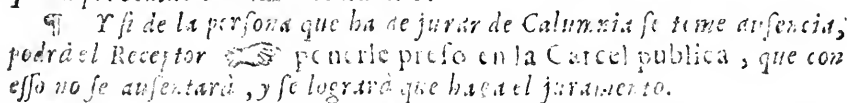 ¶ Y ſi de la perſona que ha de jurar de Calumnia ſe teme auſencia,
podrá el Receptor ☞ ponerle preſo en la Carcel publica, que con
eſſo no ſe auſentarà, y ſe lograrà que haga el juramento.